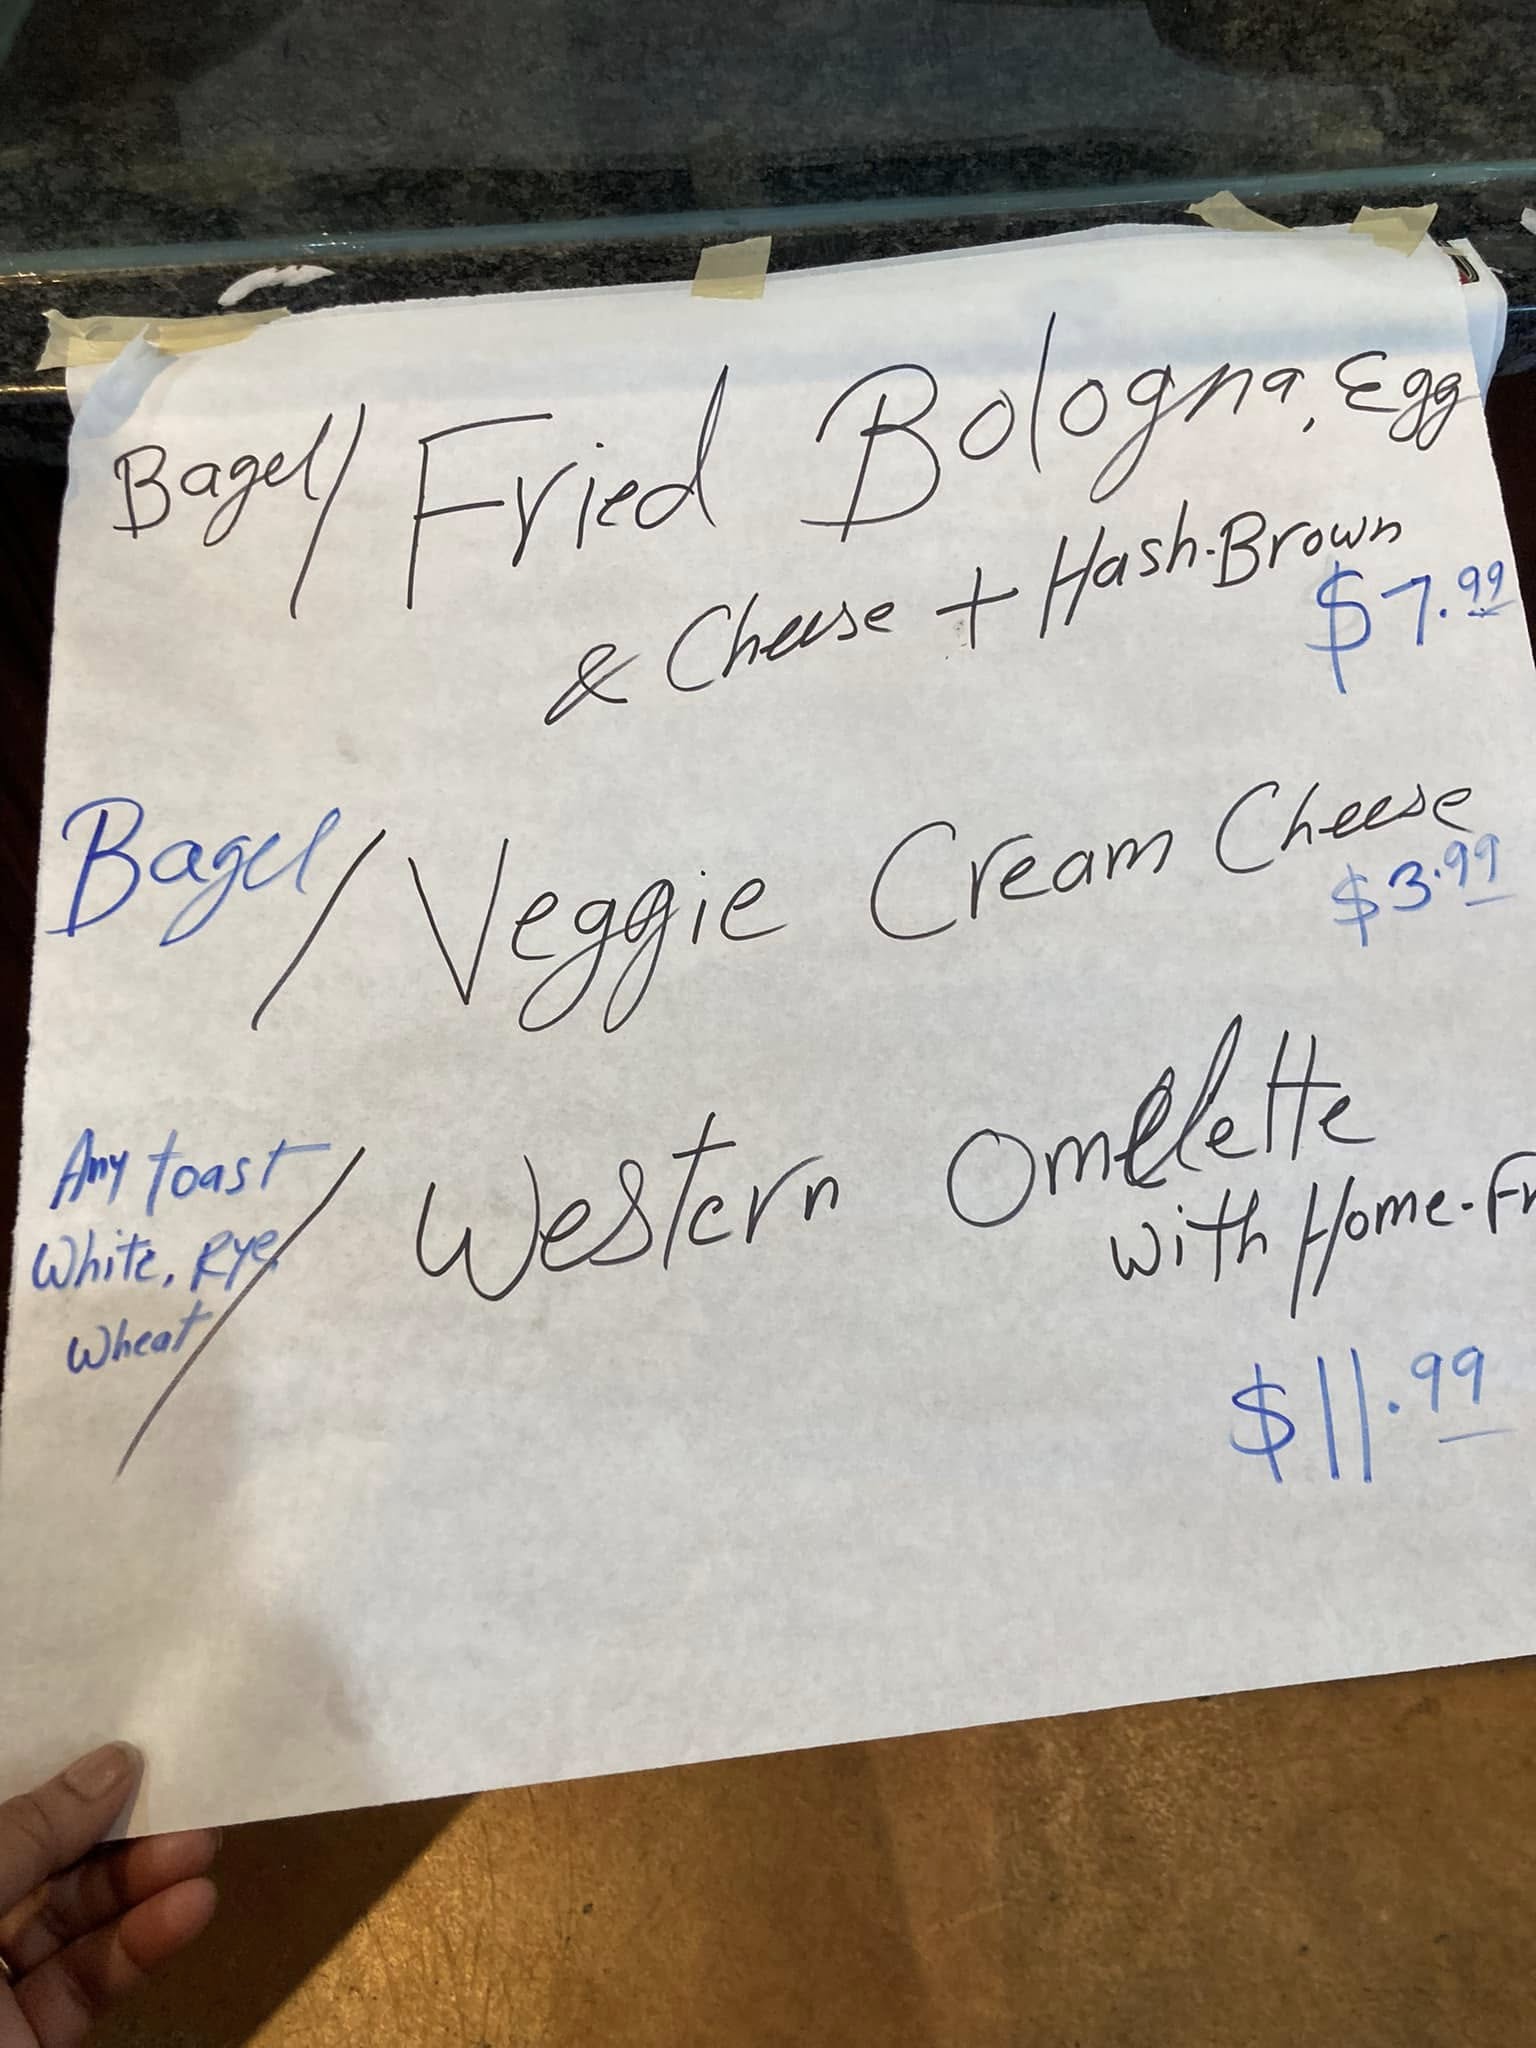 Bagel/ Fried Bologna, Egg
& Cheese + Hash-Brown
$7.99
Bagel/ Veggie Cream Cheese
$3.99
Any toast
White, Rye,
Wheat
/ Western Omelette
with Home-Fr
$11.99